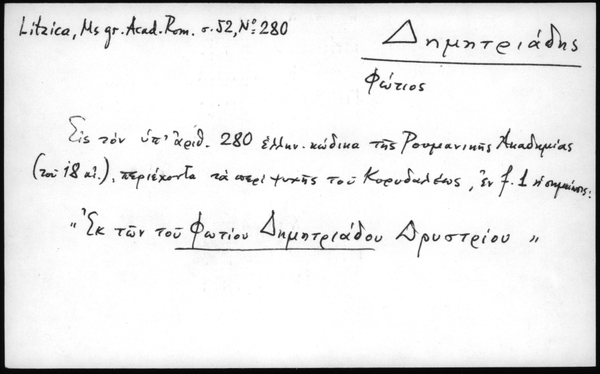 Litzica, Ms gr. Acad. Rom. σ. 52, Nº 280
Δημητριάδης
Φώτιος
Εἰς τὸν ὑπ' ἀριθ. 280 ἑλλην. κώδικα τῆς Ρουμανικῆς Ἀκαδημίας
(τοῦ 18 αἰ.), περιέχοντα τὰ περὶ ψυχῆς τοῦ Κορυδαλέως, ἐν f. 1 ἡ σημείωσις:
"Ἐκ τῶν τοῦ Φωτίου Δημητριάδου Δρυστρίου"